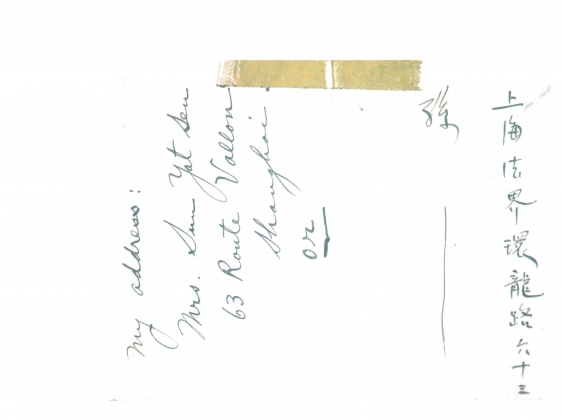 My address:
Mrs. Sun Yat Sen
63 Route Vallon
Shanghai.
or
上海法界環龍路六十三
孫